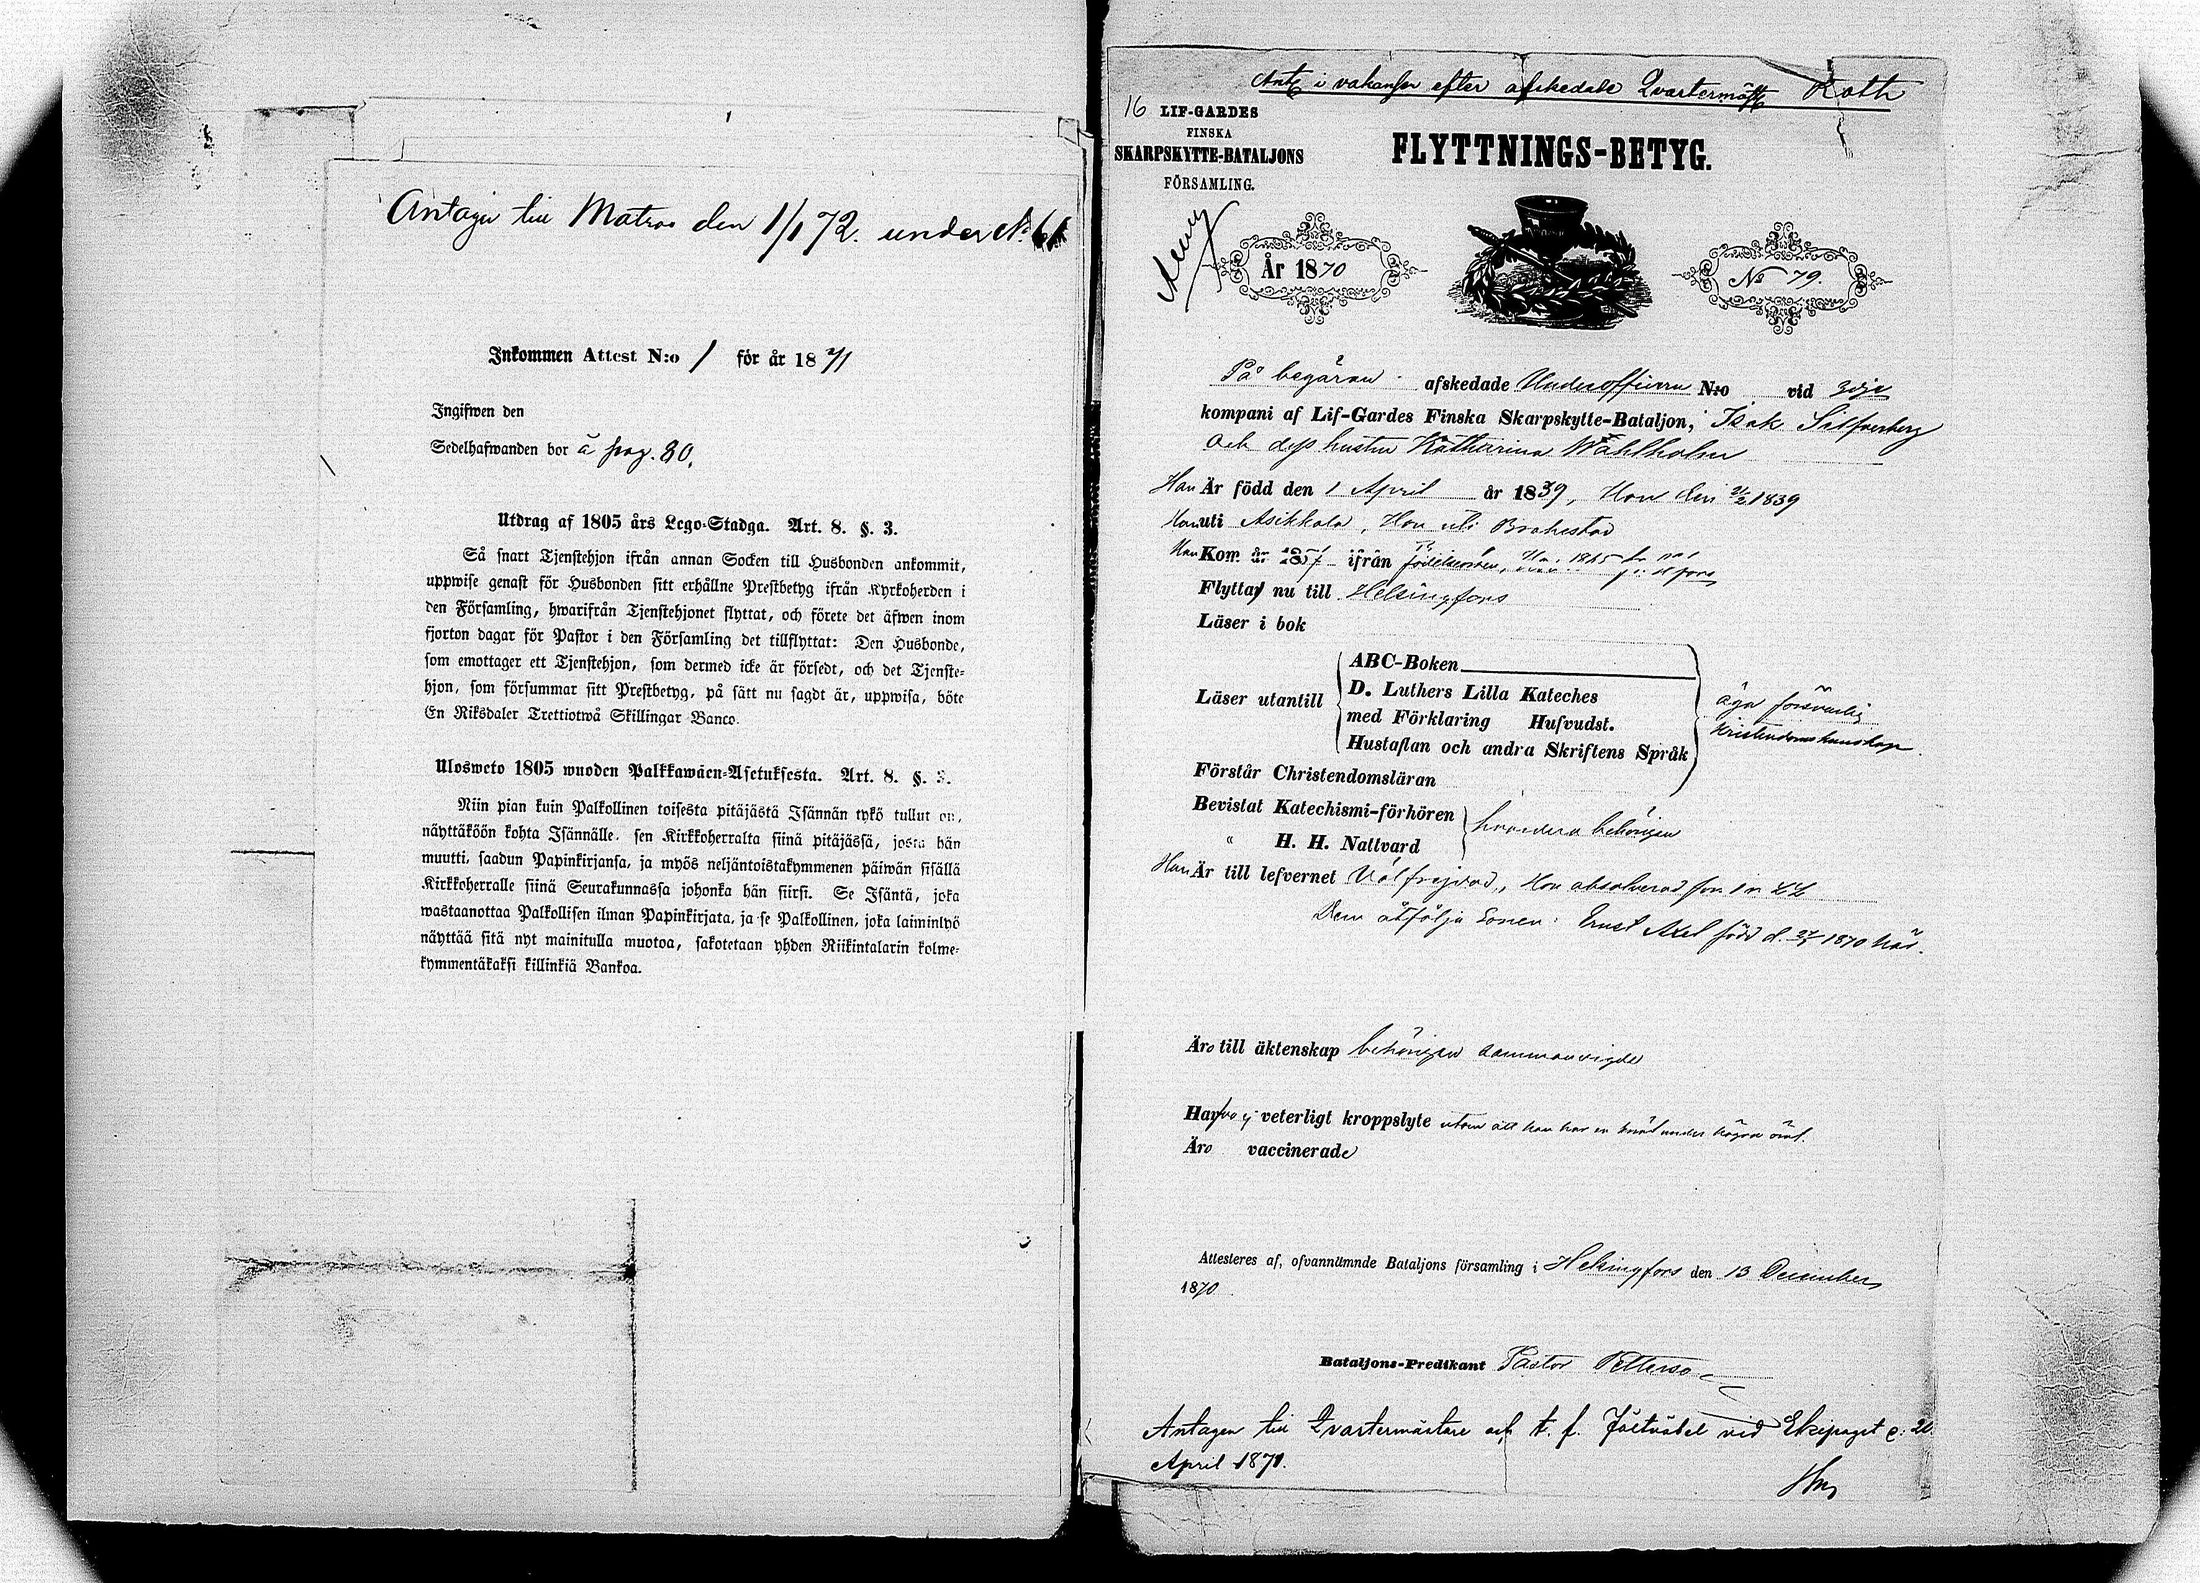 Antagen till Matros den 1/1 72. under No 61
Inkommen Attest N:o 1 för år 1871
Ingifwen den
Sedelhafwanden bor å pag. 80.
Utdrag af 1805 års Lego-Stadga. Art. 8. §. 3.
Så snart Tjenstehjon ifrån annan Socken till Husbonden ankommit,
uppwise genast för Husbonden sitt erhållne Prestbetyg ifrån Kyrkoherden i
den Församling, hwarifrån Tjenstehjonet flyttat, och förete det äfwen inom
fjorton dagar för Pastor i den Församling det tillflyttat: Den Husbonde,
som emottager ett Tjenstehjon, som dermed icke är försedt, och det Tjenste-
hjon, som försummar sitt Prestbetyg, på sätt nu sagdt är, uppwisa, böte
En Riksdaler Trettiotwå Skillingar Banco.
Ulosweto 1805 wuoden Palkkawäen-Asetuksesta. Art. 8. §. 3.
Niin pian kuin Palkollinen toisesta pitäjästä Isännän tykö tullut on,
näyttäköön kohta Isännälle, sen Kirkkoherralta siinä pitäjässä, josta hän
muutti, saadun Papinkirjansa, ja myös neljäntoistakymmenen päiwän sisällä
Kirkkoherralle siinä Seurakunnassa johonka hän siirsi. Se Isäntä, joka
wastaanottaa Palkollisen ilman Papinkirjata, ja se Palkollinen, joka laiminlyö
näyttää sitä nyt mainitulla muotoa, sakotetaan yhden Riikintalarin kolme-
kymmentäkaksi killinkiä Bankoa.
Antg i vakansen efter afskedade Qvartermäst Roth
16 LIF-GARDES
FINSKA
SKARPSKYTTE-BATALJONS
FÖRSAMLING.
FLYTTNINGS-BETYG.
År 1870
No 79.
På begäran afskedade Underofficern N:o vid 3dje
kompani af Lif-Gardes Finska Skarpskytte-Bataljon, Isak Silfverberg
och dess hustru Katharina Wahlholm
Han Är född den 1 April år 1839, Hon den 21/2 1839
Han uti Asikkala, Hon uti Brahestad
Han Kom år 1857 ifrån födelseorten, Hon 1865
Flytta nu till Helsingfors
Läser i bok
Läser utantill
ABC-Boken
D. Luthers Lilla Kateches
med Förklaring Hufvudst.
Hustaflan och andra Skriftens Språk
äga försvarlig
kristendomskunskap.
Förstår Christendomsläran
Bevistat Katechismi-förhören
" H. H. Nattvard
hvardera behörigen
Han Är till lefvernet Välfrejdad, Hon absolverad för 1 m LL
Dem åtfölja Sonen: Ernst Axel född d. 27/7 1870 här.
Äro till äktenskap behörigen sammanvigde
Hafva ej veterligt kroppslyte utom att han har en under högra
Äro vaccinerade
Attesteres af, ofvannämnde Bataljons församling i Helsingfors den 13 December
1870.
Bataljons-Predikant Pastor Petterso
Antagen till Qvartermästare och t. f. Fältväbel vid Ekipaget d: 20
April 1871.